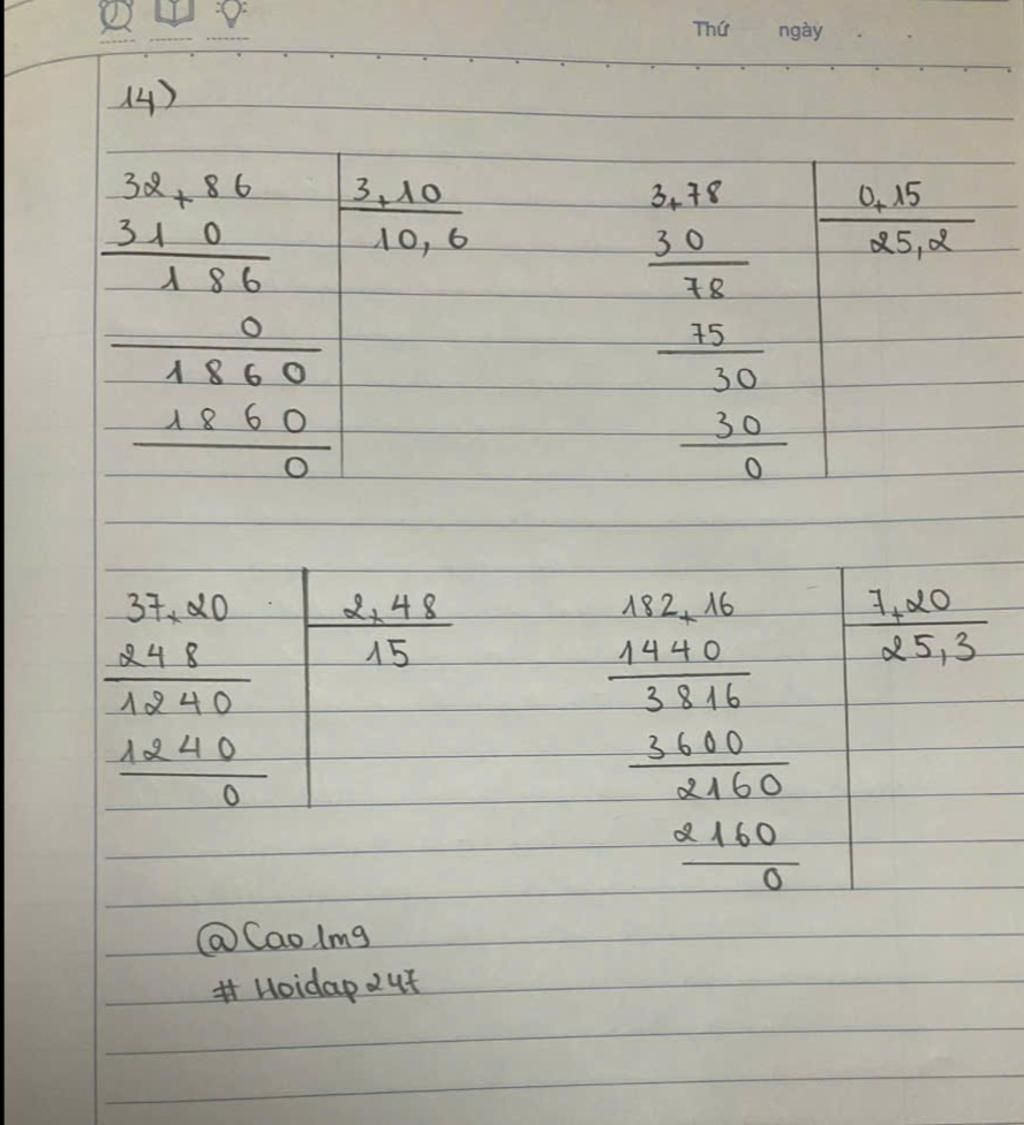 Thứ ngày . .
14)
32,86 3,10 3,78 0,15
310 10,6 30 25,2
186 78
0 75
1860 30
1860 30
0 0
37,20 2,48 182,16 7,20
248 15 1440 25,3
1240 3816
1240 3600
0 2160
2160
0
@Cao1m9
#Hoidap247